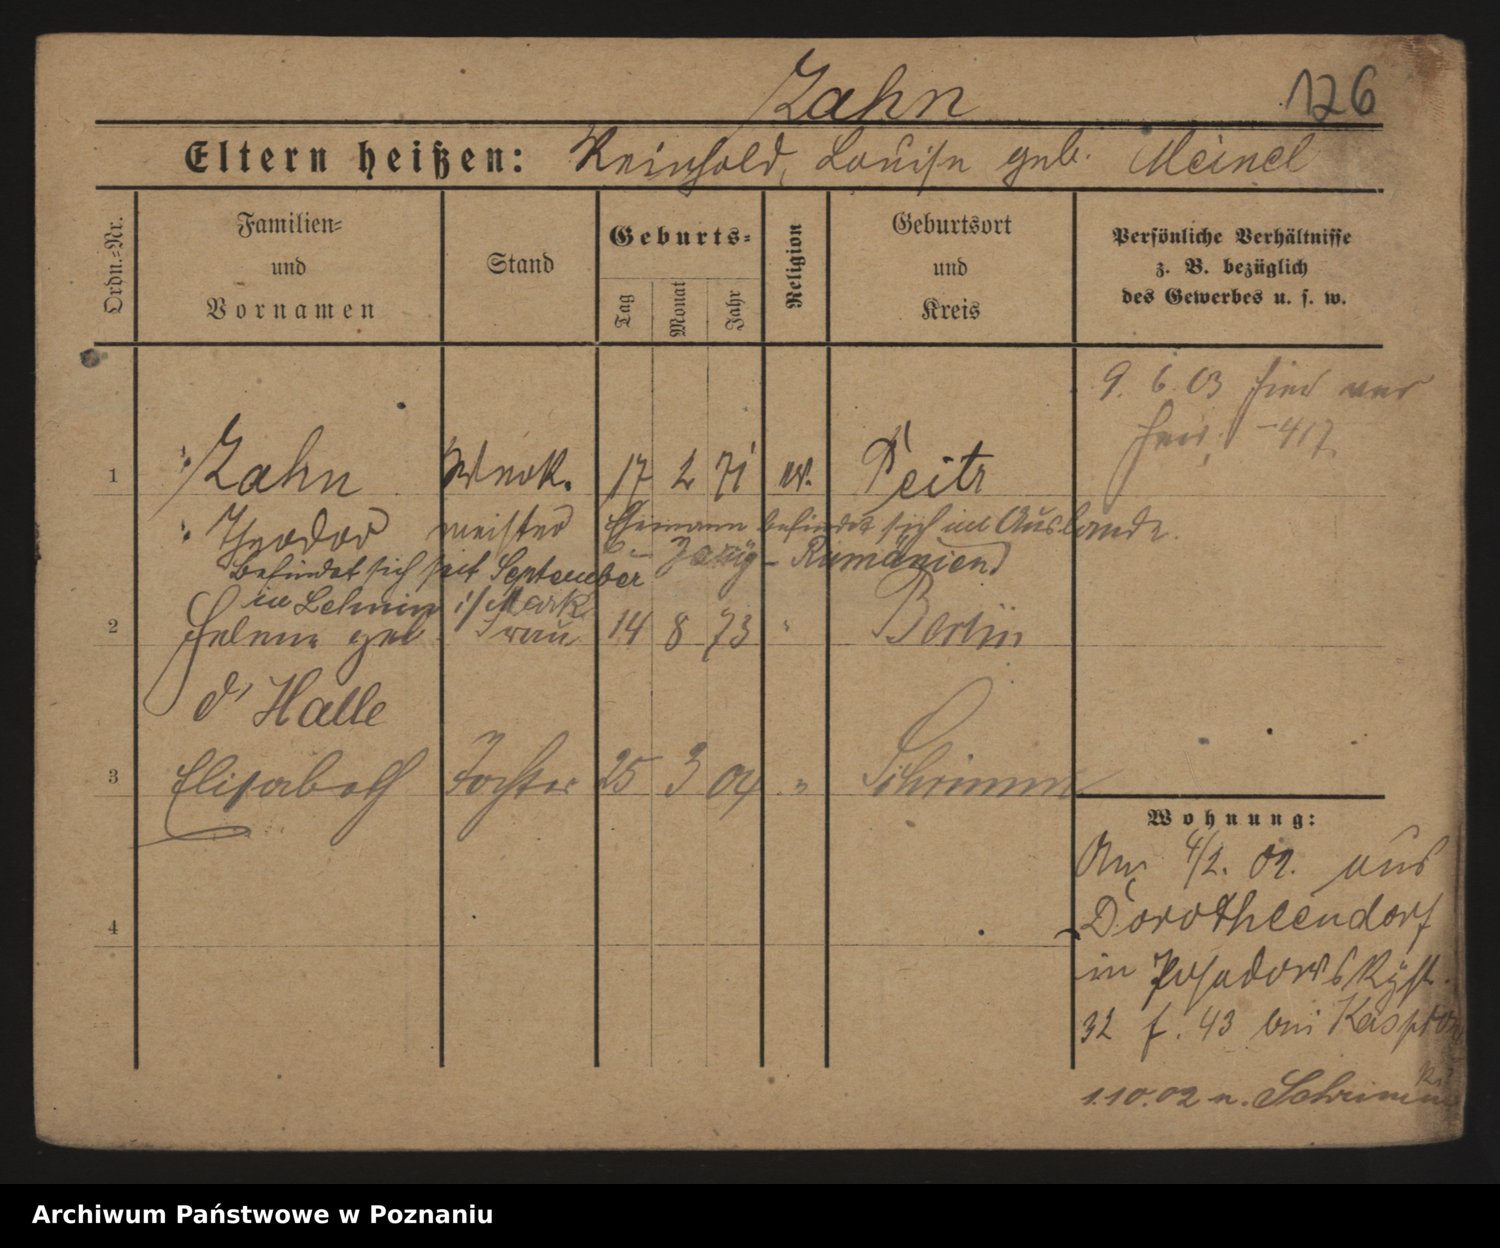 Zahn 126
Eltern heißen: Reinhold, Louise geb. Meinel
Ordn.=Nr.
Familien=
und
Vornamen
Stand
Geburts=
Tag
Monat
Jahr
Religion
Geburtsort
und
Kreis
Persönliche Verhältnisse
z. B. bezüglich
des Gewerbes u. s. w.
9. 6. 03
417
1 Zahn Werk. 17 2 71 Peitz
Theodor meister Ehemann befindet sich im Auslande.
Rumänien
befindet sich seit September
in Lehnin i/Mark
2 Helene geb. Frau 14 8 73 " Berlin
d'Halle
3 Elisabeth Tochter 25 3 04 " Schrimm
4
Wohnung:
Am 4/2. 02. aus
Dorotheendorf
in Posadowskyst.
32 f. 43 bei
1.10.02 n. Schrimm
Archiwum Państwowe w Poznaniu